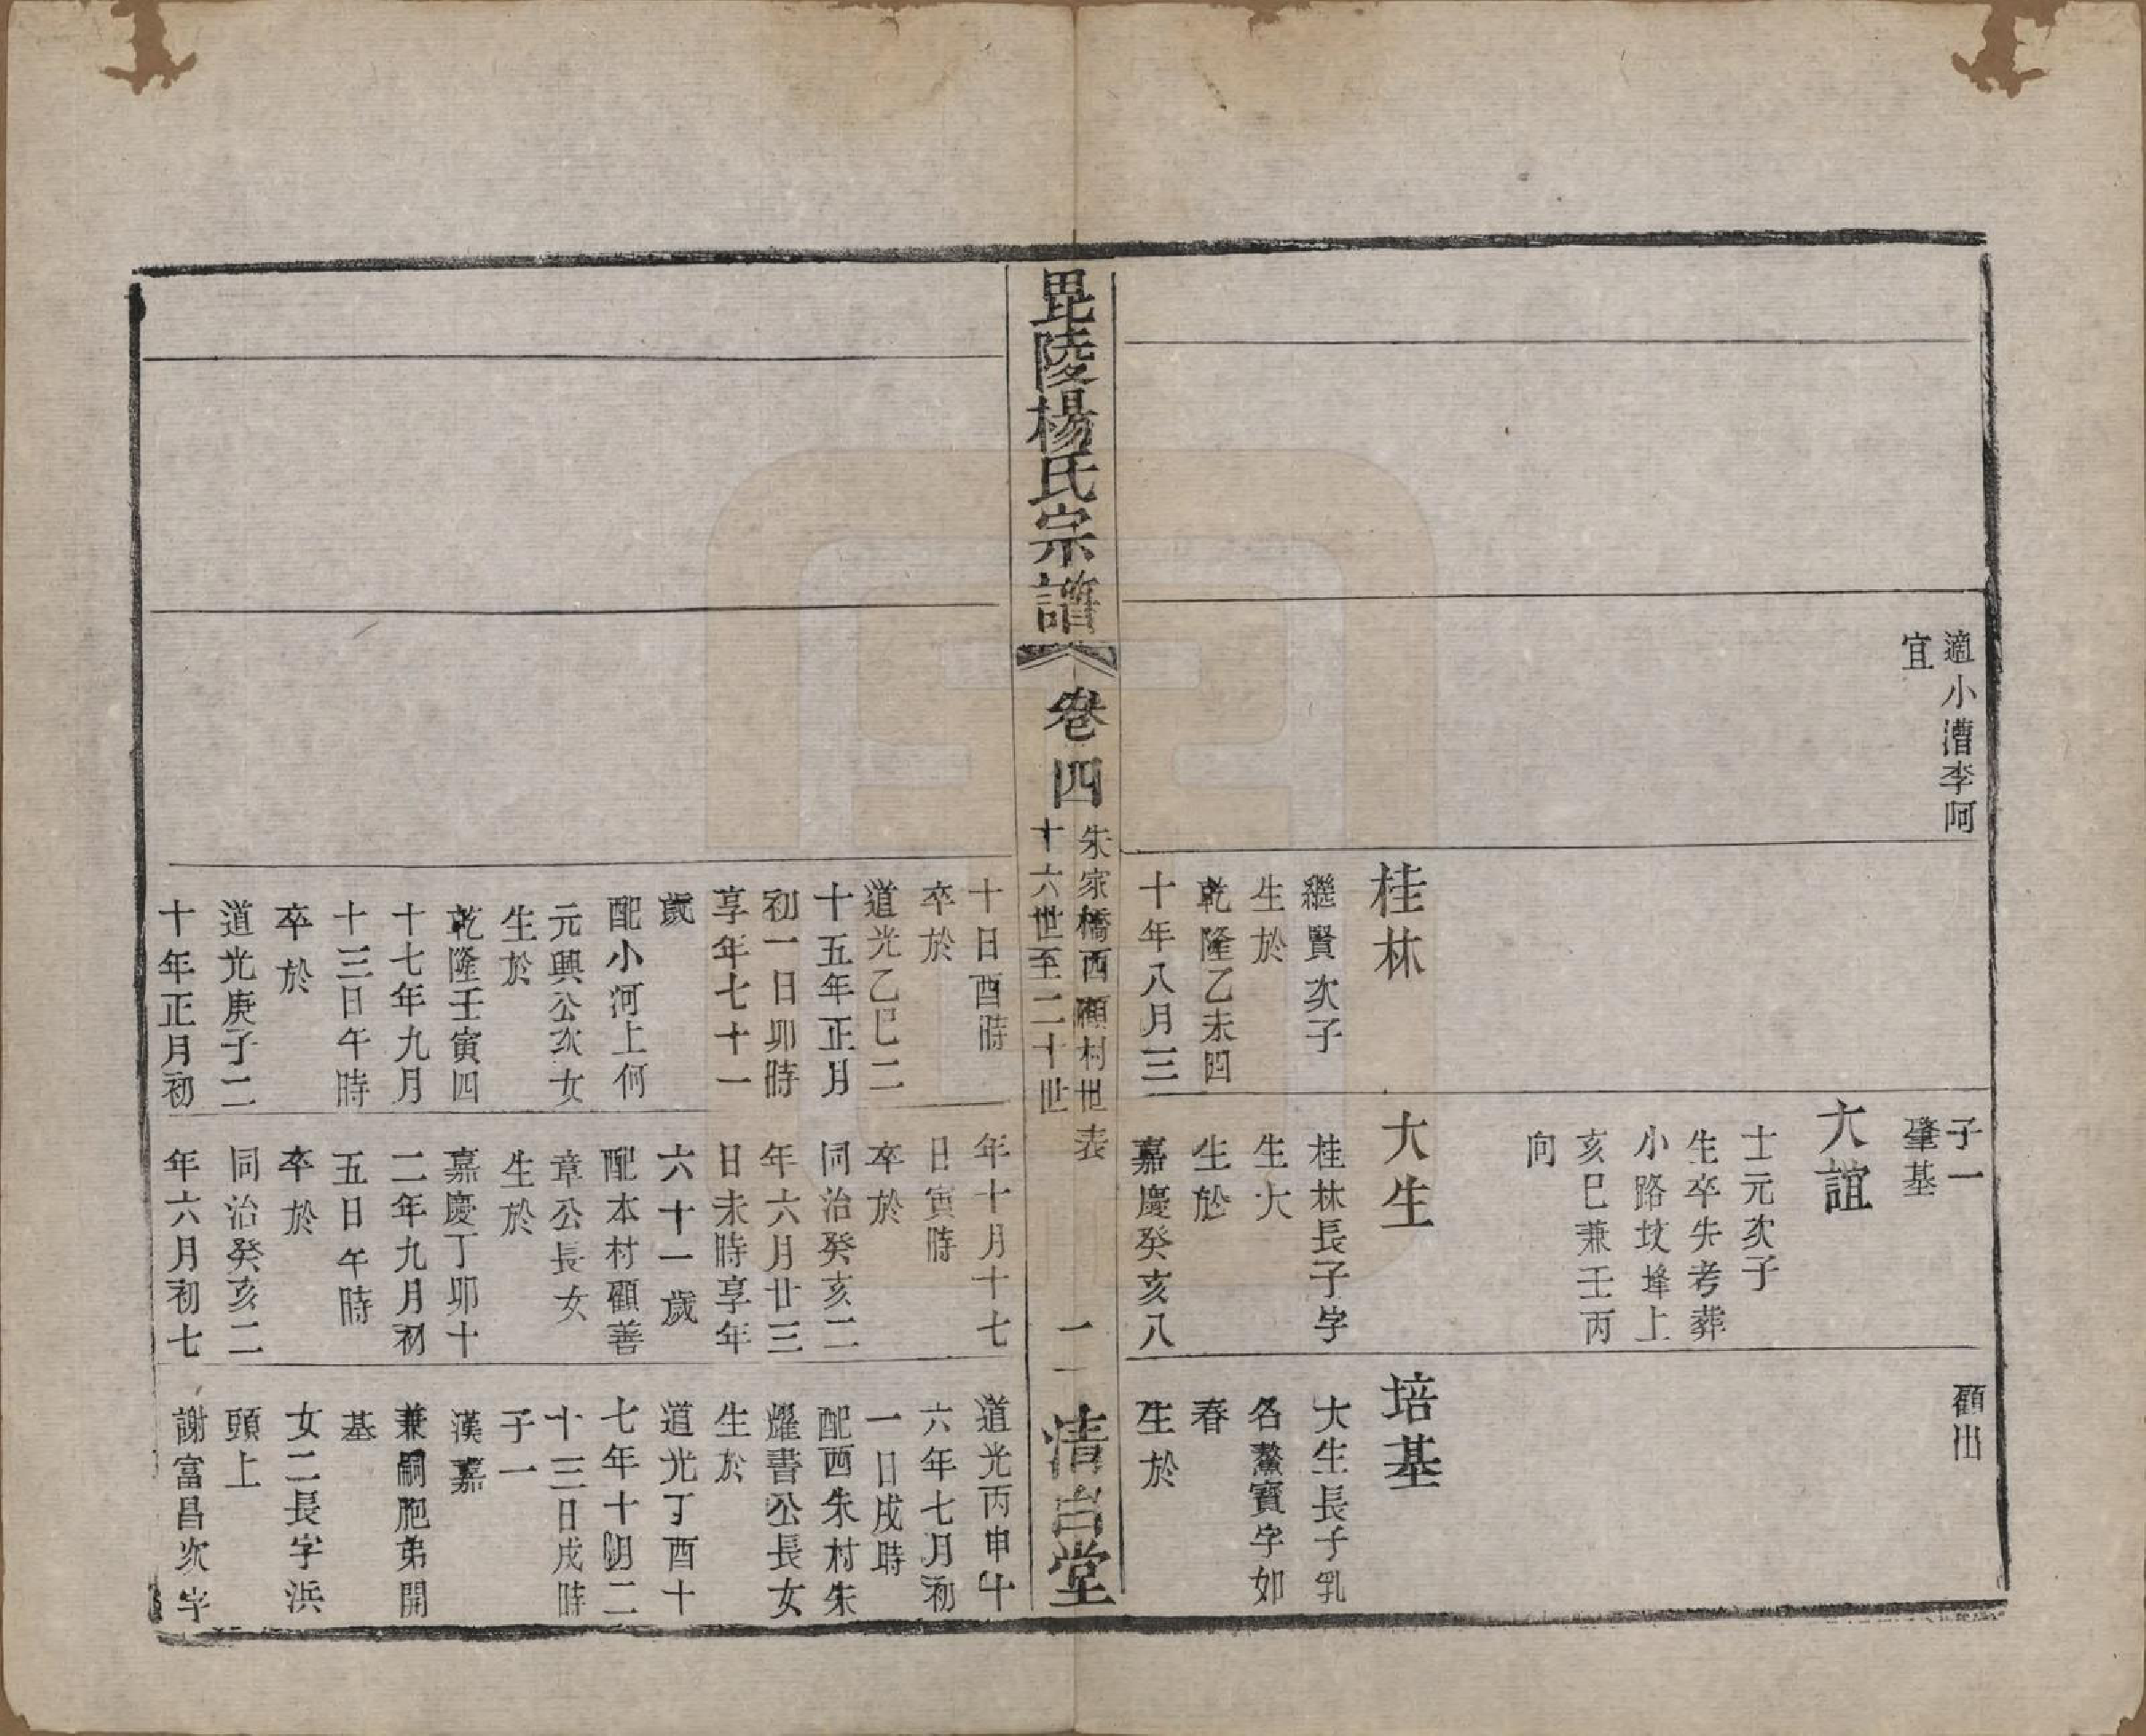 適小漕李阿
宜
桂林
繼賢次子
生於
乾隆乙未四
十年八月三
子一
肇基
大誼
士元次子
生卒失考葬
小路坟埄上
亥巳兼壬丙
向
大生
桂林長子字
生大
生於
嘉慶癸亥八
顧出
培基
大生長子乳
名鰲寶字如
春
生於
毘陵楊氏宗譜
卷四
朱家橋西顧村世表
十六世至二十世
一
清白堂
十日酉時
卒於
道光乙巳二
十五年正月
初一日卯時
享年七十一
歲
配小河上何
元興公次女
生於
乾隆壬寅四
十七年九月
十三日午時
卒於
道光庚子二
十年正月初
年十月十七
日寅時
卒於
同治癸亥二
年六月廿三
日未時享年
六十一歲
配本村顧善
章公長女
生於
嘉慶丁卯十
二年九月初
五日午時
卒於
同治癸亥二
年六月初七
道光丙申十
六年七月初
一日戌時
配西朱村朱
耀書公長女
生於
道光丁酉十
七年十月二
十三日戌時
子一
漢嘉
兼嗣胞弟開
基
女二長字浜
頭上
謝富昌次字